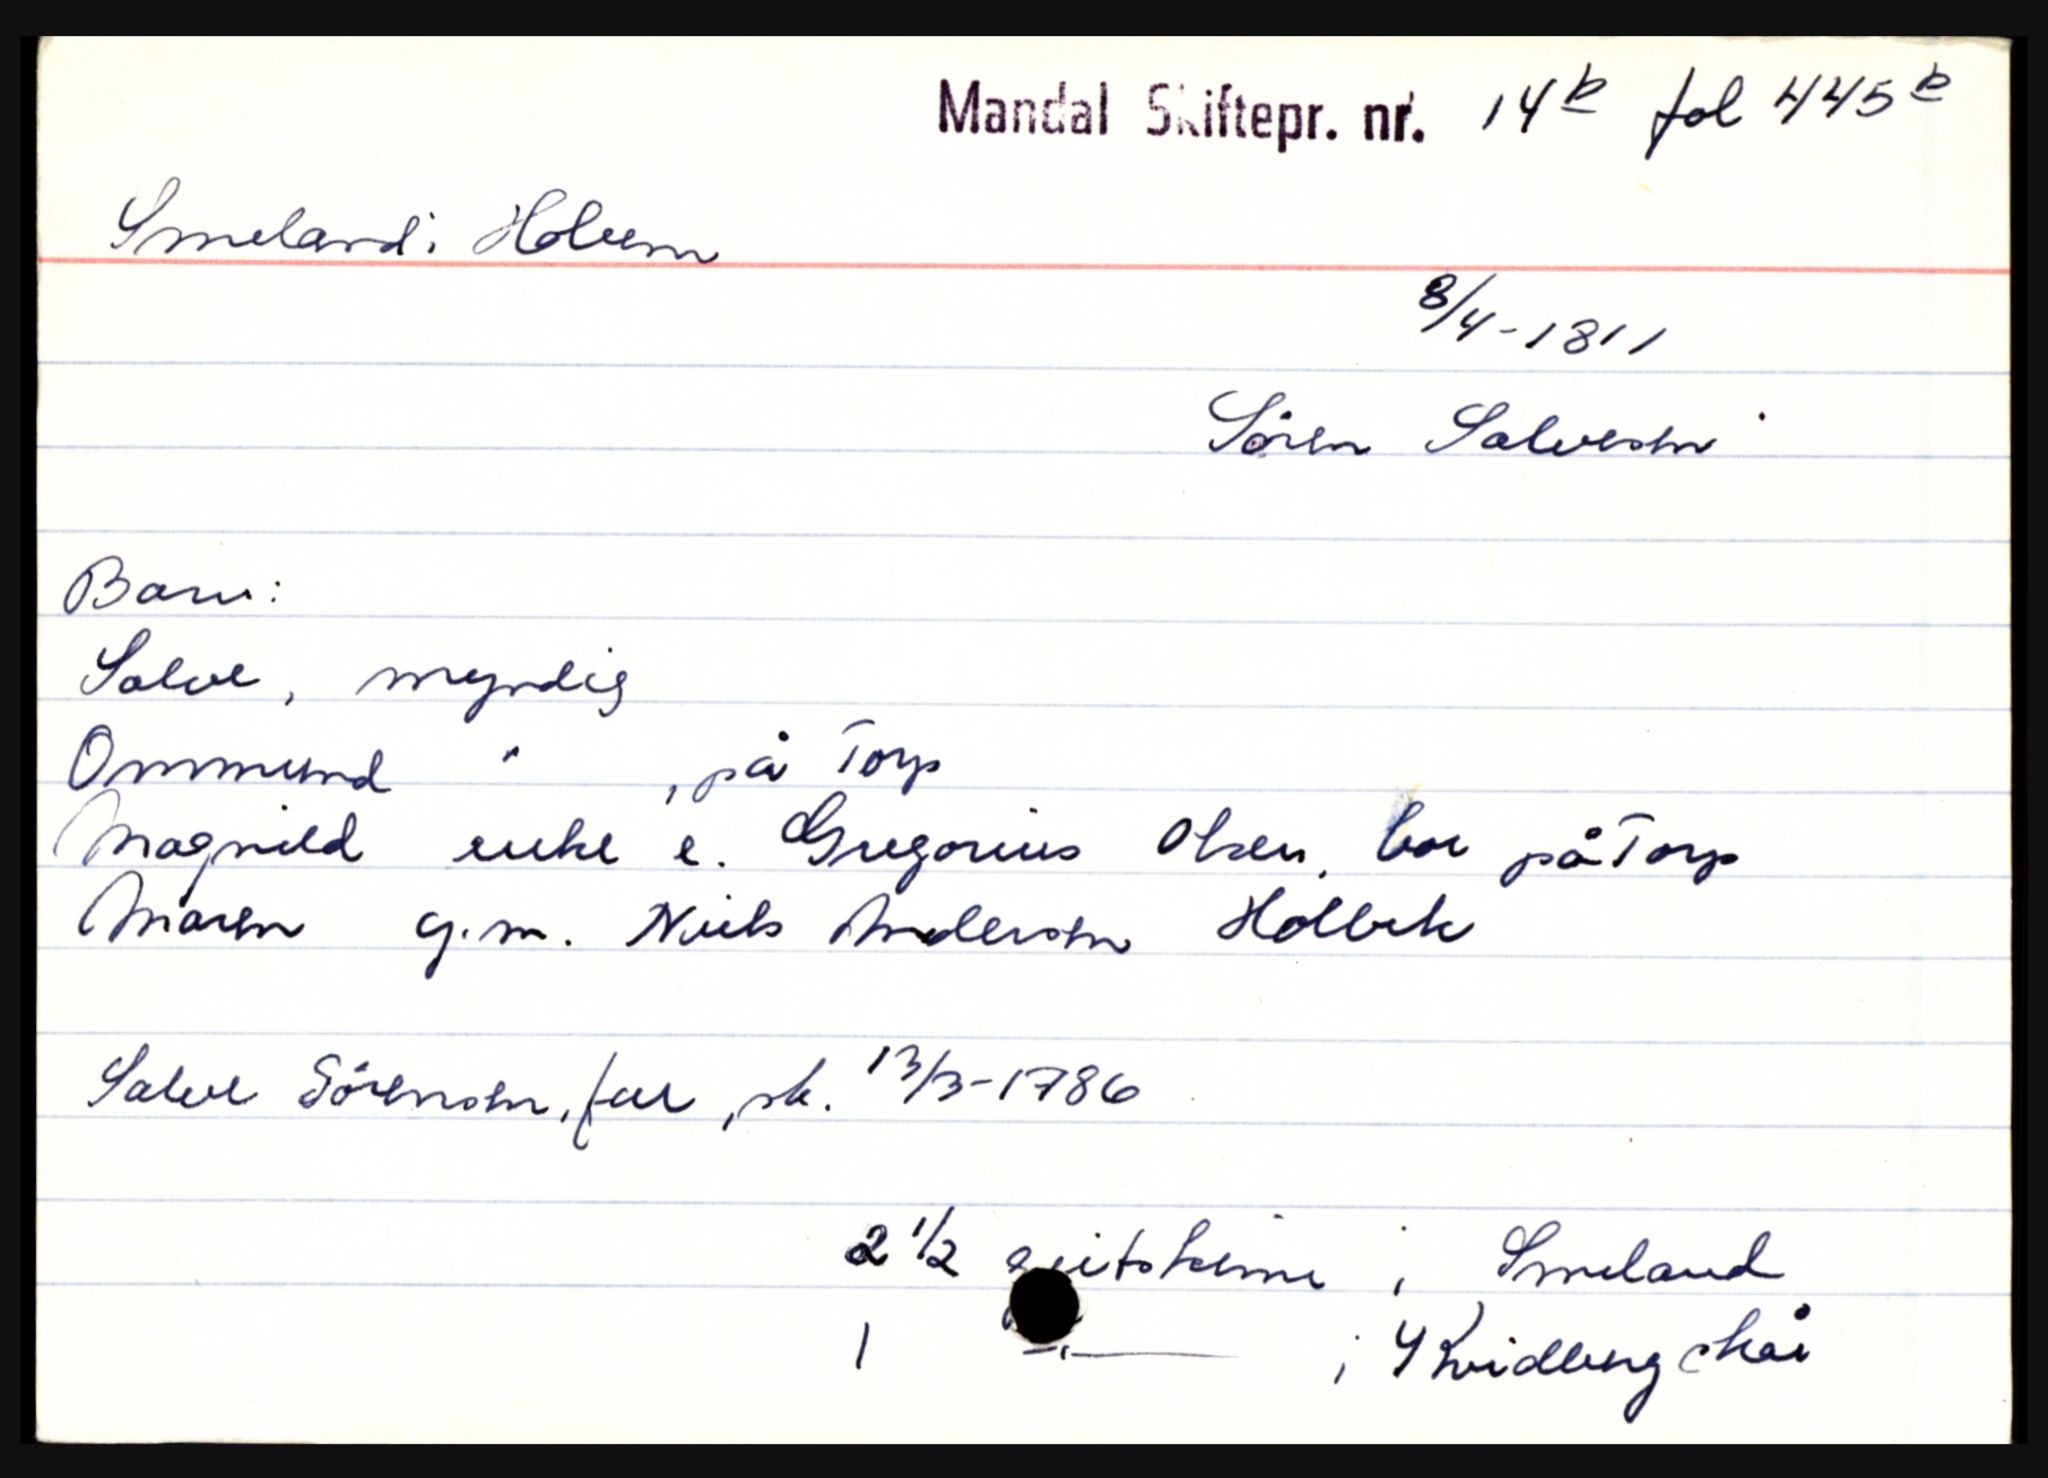 Mandal Skiftepr. nr. 14b fol 445b
Smeland i Holum
8/4-1811
Sören Salvesen
Barn:
Salve, myndig
Ommund " , på Torp
Magnild enke e. Gregorius Olsen, bor på Torp
Maren g.m. Niels Andersen Holbek
Salve Sörensen, far, sk. 13/3-1786
2 1/2 geitskinn i Smeland
1 —"— i Y Kvidbergskår